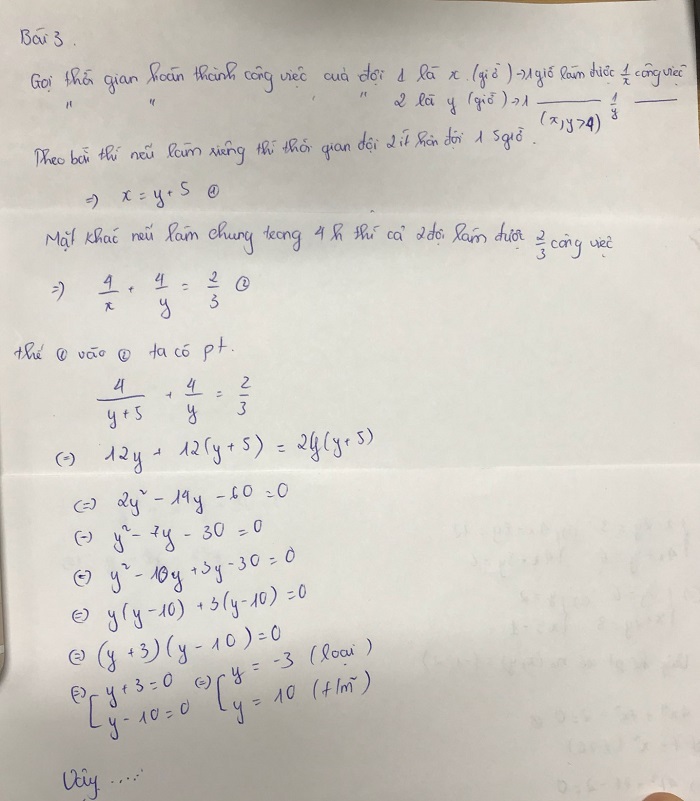 Bài 3.
Gọi thời gian hoàn thành công việc của đội 1 là x (giờ) → 1 giờ làm được 1/x công việc
" " " 2 là y (giờ) → 1 ——— 1/y ———
(x, y > 4)
Theo bài thì nếu làm riêng thì thời gian đội 2 ít hơn đội 1 5 giờ.
=> x = y + 5 ①
Mặt khác nếu làm chung trong 4 h thì cả 2 đội làm được 2/3 công việc
=> 4/x + 4/y = 2/3 ②
thế ① vào ② ta có pt.
4/(y + 5) + 4/y = 2/3
(=) 12y + 12(y + 5) = 2y(y + 5)
(=) 2y² - 14y - 60 = 0
(=) y² - 7y - 30 = 0
(=) y² - 10y + 3y - 30 = 0
(=) y(y - 10) + 3(y - 10) = 0
(=) (y + 3)(y - 10) = 0
(=) [ y + 3 = 0 (=) [ y = -3 (loại)
y - 10 = 0 y = 10 (t/m)
Vậy .....